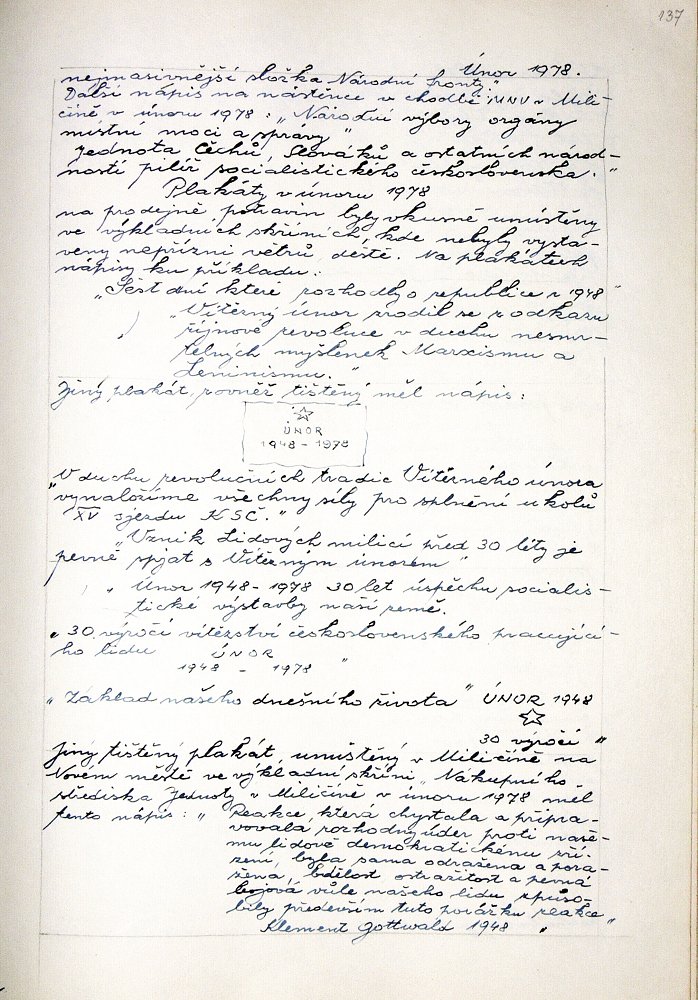 137
Únor 1978.
nejmasivnější složka Národní fronty."
Další nápis na nástěnce v chodbě MNV v Mili-
číně v únoru 1978: „Národní výbory orgány
místní moci a správy"
Jednota Čechů, Slováků a ostatních národ-
ností pilíř socialistického československa."
Plakáty v únoru 1978
na prodejně potravin byly vkusně umístěny
ve výkladních skříních, kde nebyly vysta-
veny nepřízni větrů, deště. Na plakátech
nápisy ku příkladu:
„Šest dní které rozhodly o republice r 1948"
„Vítězný únor zrodil se z odkazu
říjnové revoluce v duchu nesmr-
telných myšlenek Marxismu a
Leninismu."
Jiný plakát, rovněž tištěný měl nápis:
ÚNOR
1948 - 1978
„V duchu revolučních tradic Vítězného února
vynaložíme všechny síly pro splnění úkolů
XV sjezdu KSČ."
„Vznik Lidových milicí před 30 léty je
pevně spjat s Vítězným únorem"
„Únor 1948-1978 30 let úspěchu socialis-
tické výstavby naší země.
„30. výročí vítězství československého pracující-
ho lidu ÚNOR
1948 - 1978 "
„Základ našeho dnešního života" ÚNOR 1948
30 výročí "
Jiný tištěný plakát, umístěný v Miličíně na
Novém městě ve výkladní skříni „Nákupního
střediska Jednoty v Miličíně v únoru 1978 měl
tento nápis: „Reakce, která chystala a připra-
vovala rozhodný úder proti naše-
mu lidově demokratickému zří-
zení, byla sama odražena a pora-
žena, bdělost ostražitost a pevná
bojová vůle našeho lidu způso-
bily především tuto porážku reakce"
Klement Gottwald 1948 "